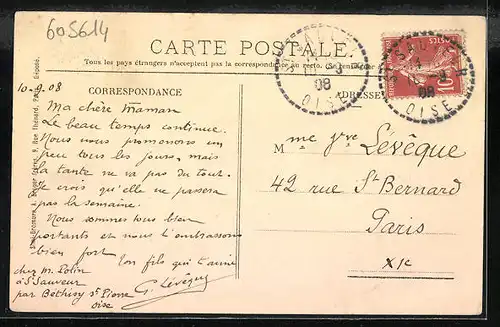 605614
CARTE POSTALE
Tous les pays étrangers n'acceptent pas la correspondance au recto.
10-9-08
CORRESPONDANCE
ADRESSE
Ma chère Maman
Le beau temps continue.
Nous nous promenons un
peu tous les jours, mais
la tante ne va pas du tout.
Je crois qu'elle ne passera
pas la semaine.
Nous sommes tous bien
portants et nous t'embrassons
bien fort
Ton fils qui t'aime
G. Lévêque
chez M. Polin
à St Sauveur
par Béthisy St Pierre
oise
M me Vve Lévêque
42 rue St Bernard
Paris
XIe
08
OISE
10
08
OISE